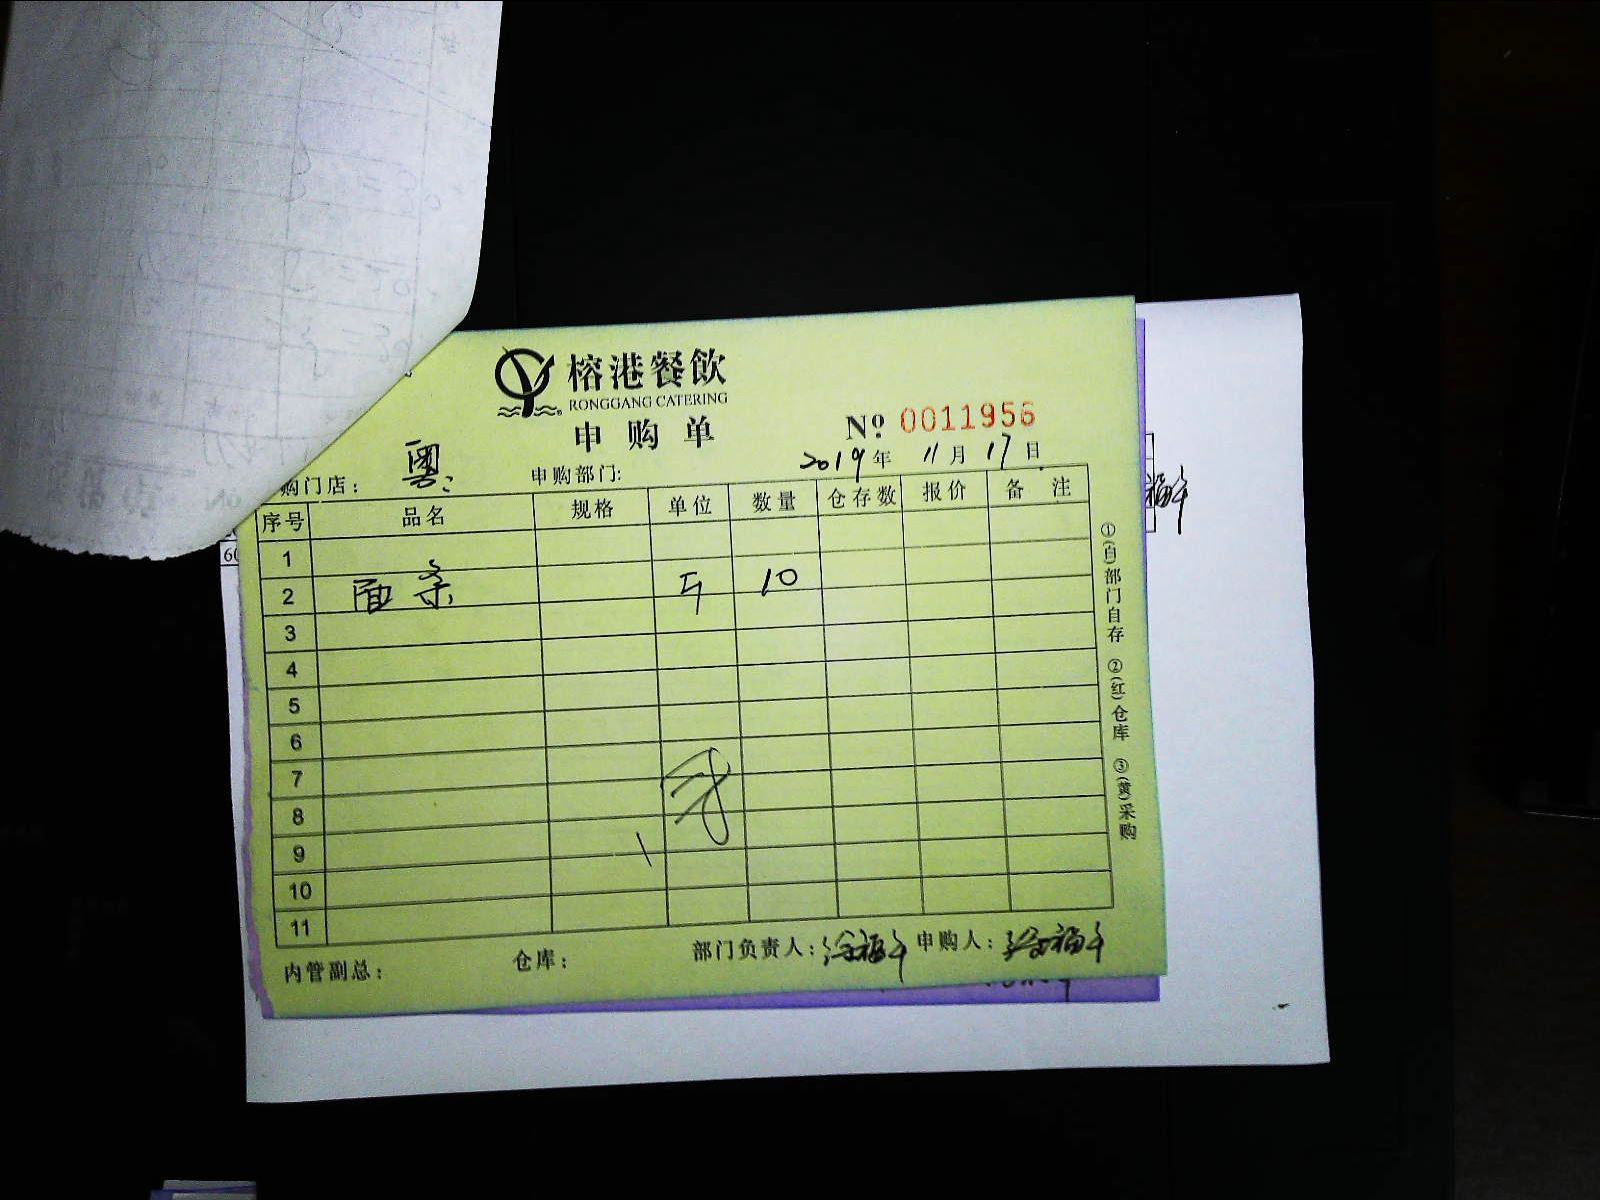 榕港餐飲
RONGGANG CATERING
申购单
№ 0011956
2019年 11月 17日
购门店: 粤: 申购部门:
序号 品名 规格 单位 数量 仓存数 报价 备 注
1
2 面条 斤 10
3
4
5
6
7
8
9
10
11
①(白)部门自存 ②(红)仓库 ③(黄)采购
内管副总: 仓库: 部门负责人: 申购人:
60